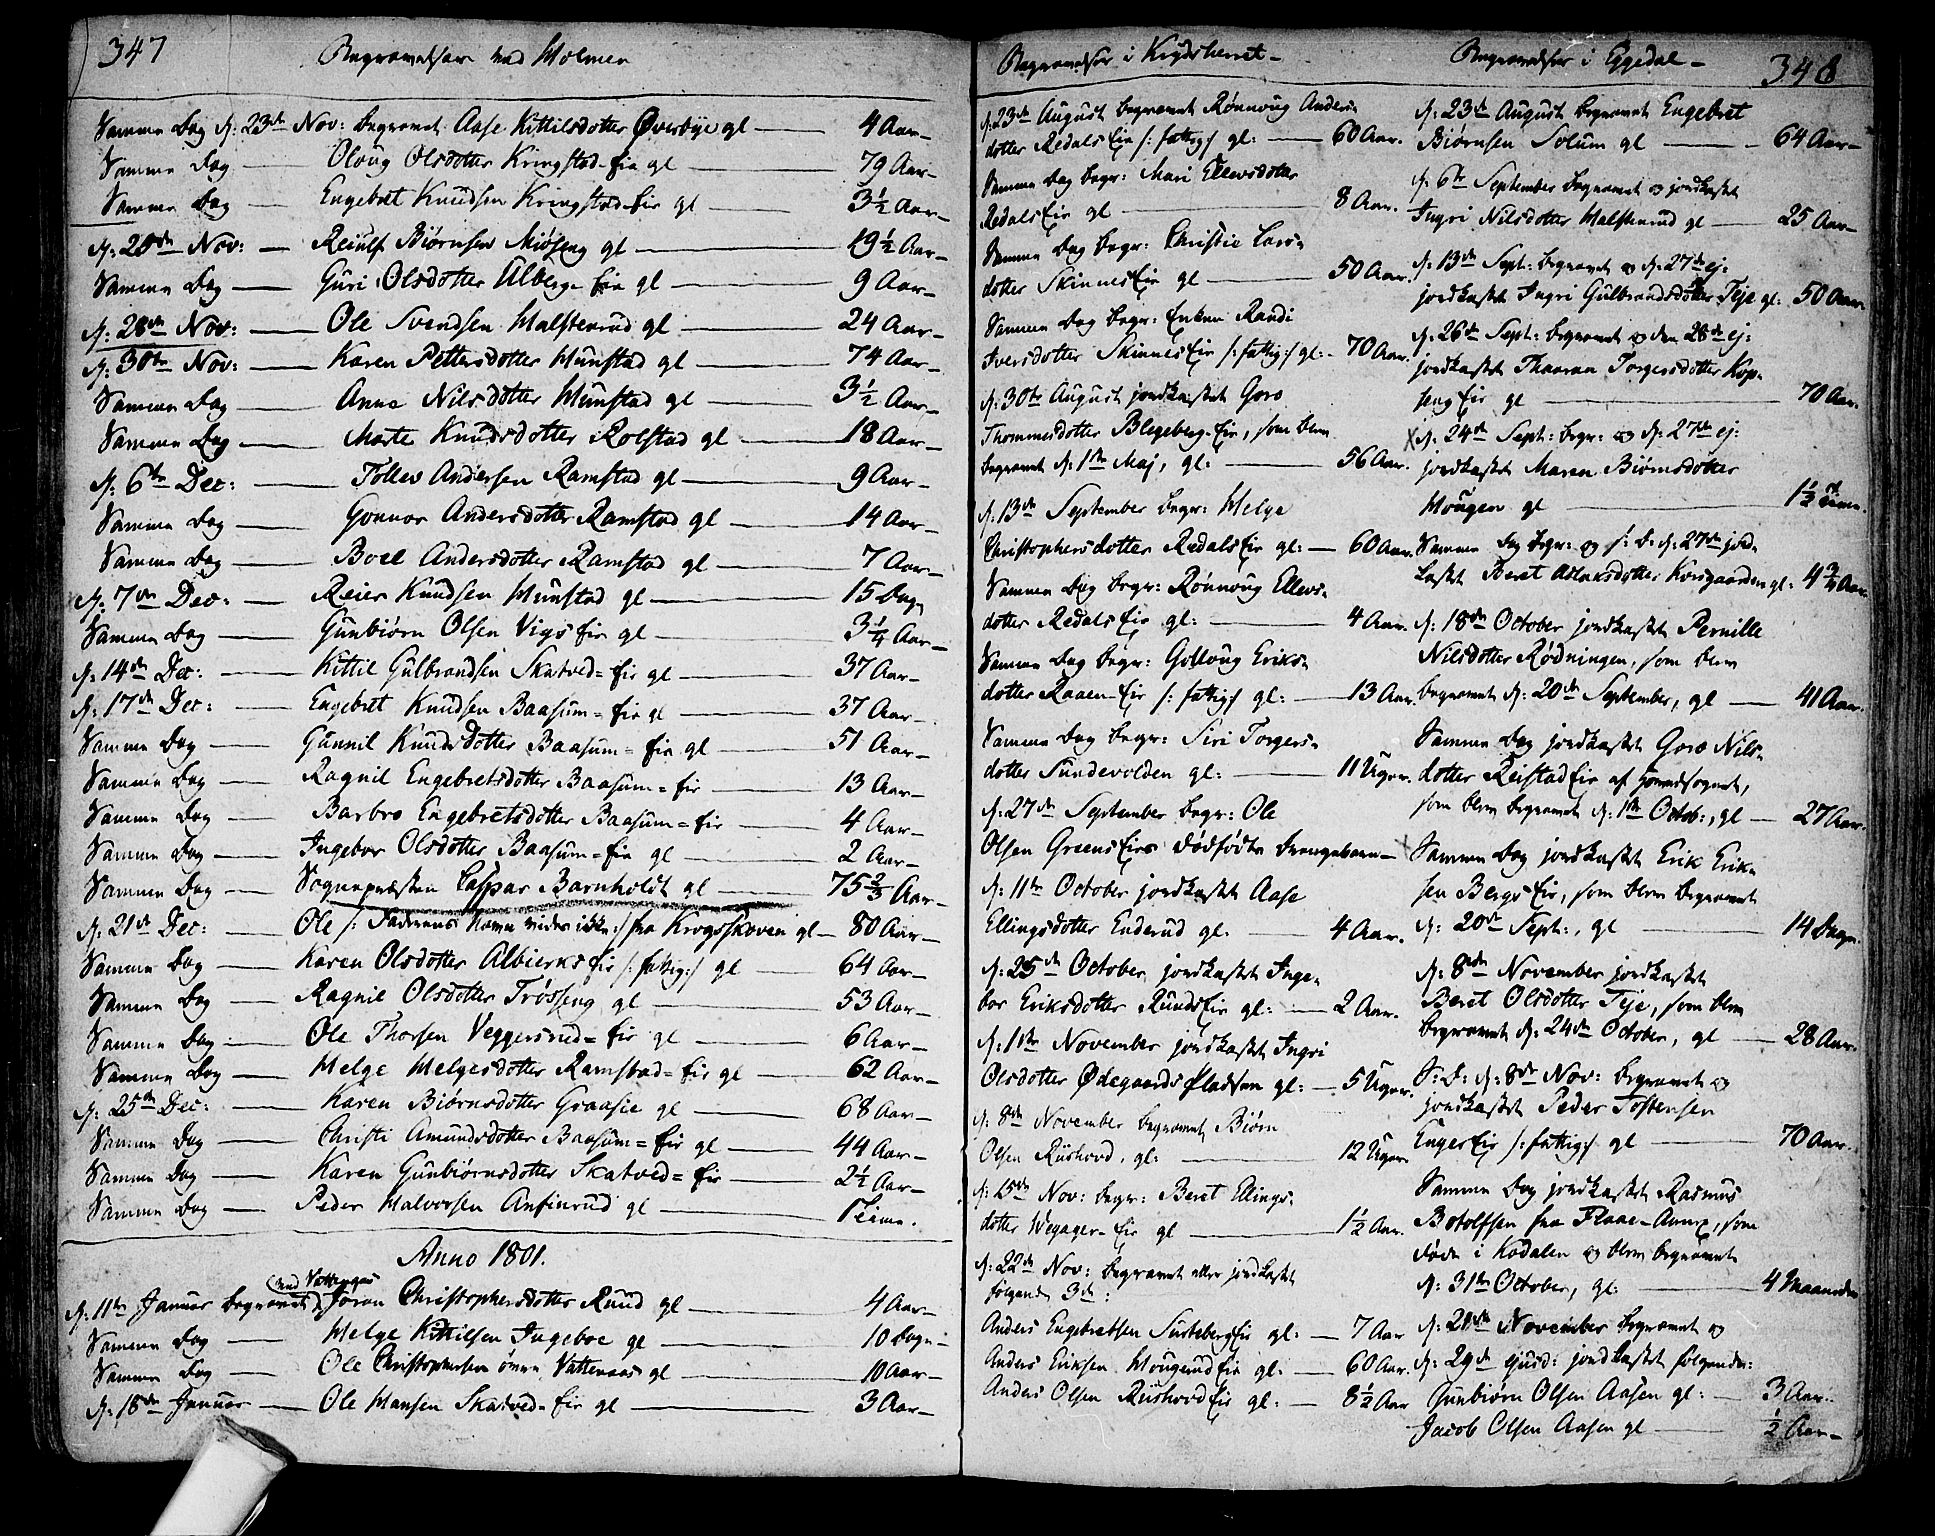 347
Begravelser ved Holmen
Samme Dag d: 23de Nov: begravet Aase Kittilsdotter Øverbye gl — 4 Aar
Samme Dag — Oloug Olsdotter Kringstad-eie gl — 79 Aar
Samme Dag — Engebret Knudsen Kringstad-eie gl — 3½ Aar
Nov: — Reiulf Biørnsen Miøseng gl — 19½ Aar
Samme Dag — Guri Olsdotter Alberg-eie gl — 9 Aar
d: 28de Nov: — Ole Svendsen Halstenrud gl — 24 Aar
d: 30te Nov: — Karen Pettersdotter Hunstad gl — 74 Aar
Samme Dag — Anne Nilsdotter Hunstad gl — 3½ Aar
Samme Dag — Marte Knudsdotter Rolstad gl — 18 Aar
d: 6te Dec: — Tollev Andersen Ramstad gl — 9 Aar
Samme Dag — Gonnor Andersdotter Ramstad gl — 14 Aar
Samme Dag — Boel Andersdotter Ramstad gl — 7 Aar
d: 7de Dec: — Reier Knudsen Hunstad gl — 15 Dage
Samme Dag — Gunbiørn Olsen Vigs eie gl — 3¼ Aar
d: 14de Dec: — Kittil Gulbrandsen Skatved-eie gl — 37 Aar
d: 17de Dec: — Engebret Knudsen Baasum-eie gl — 37 Aar
Samme Dag — Gunnil Knudsdotter Baasum-eie gl — 51 Aar
Samme Dag — Ragnil Engebretsdotter Baasum-eie — 13 Aar
Samme Dag — Barbro Engebretsdotter Baasum-eie — 4 Aar
Samme Dag — Ingebor Olsdotter Baasum-eie gl — 2 Aar
Samme Dag — Sognepræsten Caspar Barnholdt gl — 75⅔ Aar
d: 21de Dec: — Ole /: Faderens Navn vides ikke :/ fra Krogsskoven gl — 80 Aar
Samme Dag — Karen Olsdotter Albierks eie /: fattig :/ gl — 64 Aar
Samme Dag — Ragnil Olsdotter Trøsseng gl — 53 Aar
Samme Dag — Ole Thorsen Veggersrud-eie gl — 6 Aar
Samme Dag — Helge Helgesdotter Ramstad-eie gl — 62 Aar
d: 25de Dec: — Karen Biørnsdotter Graasie gl — 68 Aar
Samme Dag — Christi Amundsdotter Baasum-eie gl — 44 Aar
Samme Dag — Karen Gunbiørnsdotter Skatved-eie — 2½ Aar
Samme Dag — Peder Halvorsen Anfinrud gl — 1 Time.
Anno 1801.
ved Vattenaas
d: 11te Januar begravet Jøran Christophersdotter Ruud gl — 4 Aar
Samme Dag — Helge Kittilsen Ingeboe gl — 10 Dage
Samme Dag — Ole Christophersen øvre Vattenaas gl — 10 Aar
d: 18de Januar — Ole Hansen Skatved-eie gl — 3 Aar
Begravelser i Krydsherret
d: 23de August begravet Rønnoug Anders-
dotter Redals Eie /: fattig :/ gl: — 60 Aar.
Samme Dag begr: Mari Ellevsdotter
Redals Eie gl — 8 Aar.
Samme Dag begr: Christie Lars-
dotter Skinnes Eie gl — 50 Aar.
Samme Dag begr: Enken Randi
Iversdotter Skinnes Eie /: fattig :/ gl: 70 Aar.
d: 30te August jordkastet Goro
Thommesdotter Blegeberg-Eie, som blev
begravet d: 1ste Maj, gl: — 56 Aar.
d: 13de September begr: Helge
Christophersdotter Redals Eie gl: — 60 Aar.
Samme Dag begr: Rønnoug Ellevs-
dotter Redals Eie gl: — 4 Aar.
Samme Dag begr: Golloug Eriks-
dotter Raaen-Eie /: fattig :/ gl: — 13 Aar.
Samme Dag begr: Siri Torgers-
dotter Sundevolden gl: — 11 Uger.
d: 27de September begr: Ole
Olsen Greens Eies dødfødte Drengebarn
d: 11te October jordkastet Aase
Ellingsdotter Enderud gl: — 4 Aar.
d: 25de October jordkastet Inge-
bor Eriksdotter Ruuds Eie gl: — 2 Aar.
d: 1ste November jordkastet Ingri
Olsdotter Ødegaards Pladsen gl: — 5 Uger.
d: 8de November begravet Biørn
Olsen Riishovd, gl: — 12 Uger.
d: 15de Nov: begr: Beret Ellings-
dotter Wegager-Eie gl — 1½ Aar.
d: 22de Nov: begravet eller jordkastet
følgende 3de:
Anders Engebretsen Susteberg Eie gl: — 7 Aar
Anders Eriksen Hougerud Eie gl: — 60 Aar.
Anders Olsen Riishovd Eie gl: — 8½ Aar
Begravelser i Eggedal
348
d: 23de August begravet Engebret
Biørnsen Solum gl — 64 Aar
d: 6te September begravet og jordkastet
Ingri Nilsdotter Halstenrud gl — 25 Aar
d: 13de Sept: begravet og d: 27de ej:
jordkastet Ingri Gulbrandsdotter Teje gl: 50 Aar
d: 26de Sept: begravet og den 28de ej:
jordkastet Thaaran Torgersdotter Kop-
seng Eie gl — 70 Aar.
x d: 24de Sept: begr: og d: 27de ej:
jordkastet Maren Biørnsdotter
Hougen gl — 1½ Time.
Samme Dag begr: og s: D: d: 27de jord-
kastet Beret Aslaksdotter Korsgaarden gl: 4¾ Aar
d: 18de October jordkastet Pernille
Nilsdotter Rødningen, som blev
begravet d: 20de September, gl — 41 Aar.
Samme Dag jordkastet Goro Nils-
dotter Reistad Eie af Hovedsognet,
som blev begravet d: 1ste Octob:, gl — 27 Aar.
Samme Dag jordkastet Erik Erik-
sen Bergs Eie, som blev begravet
d: 20de Sept:, gl — 14 Dage.
d: 8de November jordkastet
Beret Olsdotter Teje, som blev
begravet d: 24de October, gl — 28 Aar.
S: D: d: 8de Nov: begravet og
jordkastet Peder Tostensen
Enger Eie /: fattig :/ gl — 70 Aar.
Samme Dag jordkastet Rasmus
Botolfsen fra Flaae-Annex, som
døde i Kodalen og blev begravet
d: 31te October, gl: — 4 Maaneder
November begravet og
d: 29de ejusd: jordkastet følgende:
Gunbiørn Olsen Aasen gl: — 3 Aar.
Jacob Olsen Aasen gl — ½ Aar